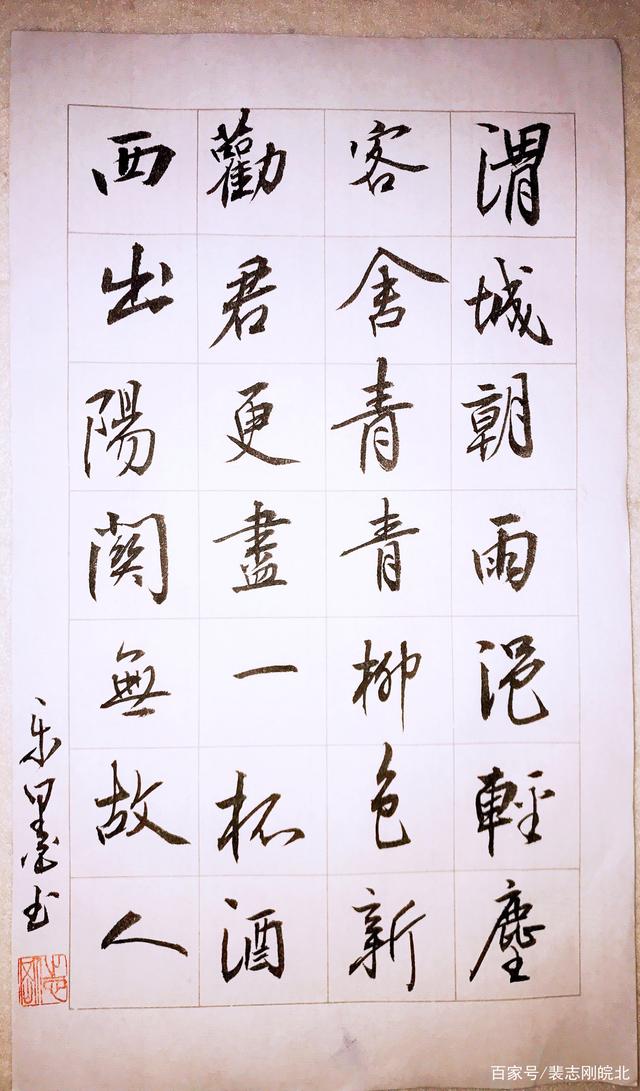 渭城朝雨浥輕塵
客舍青青柳色新
勸君更盡一杯酒
西出陽關無故人
乐墨堂书
百家号/裴志刚皖北